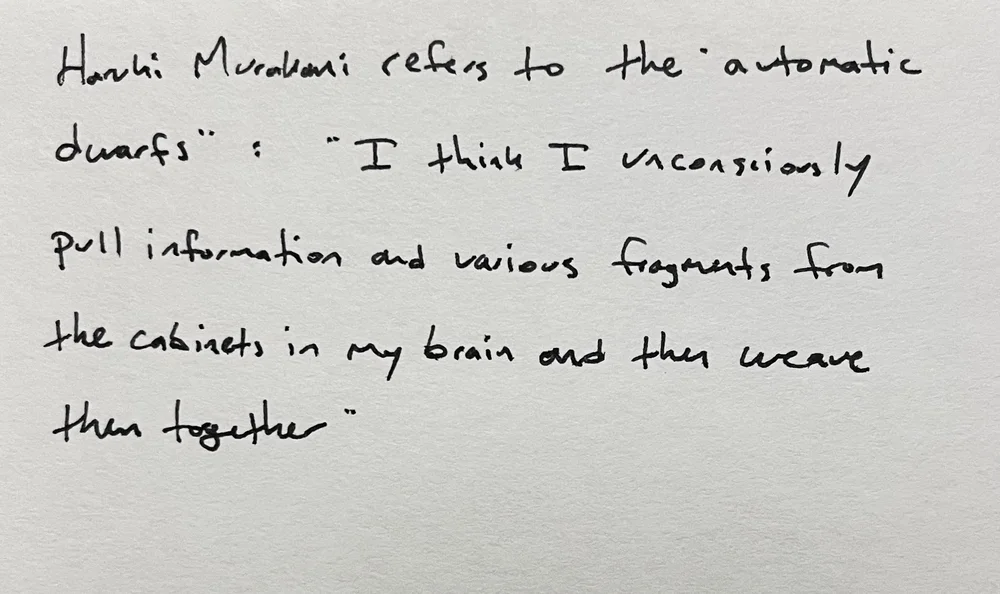 Haruki Murakami refers to the "automatic
dwarfs" : "I think I unconsciously
pull information and various fragments from
the cabinets in my brain and then weave
them together"